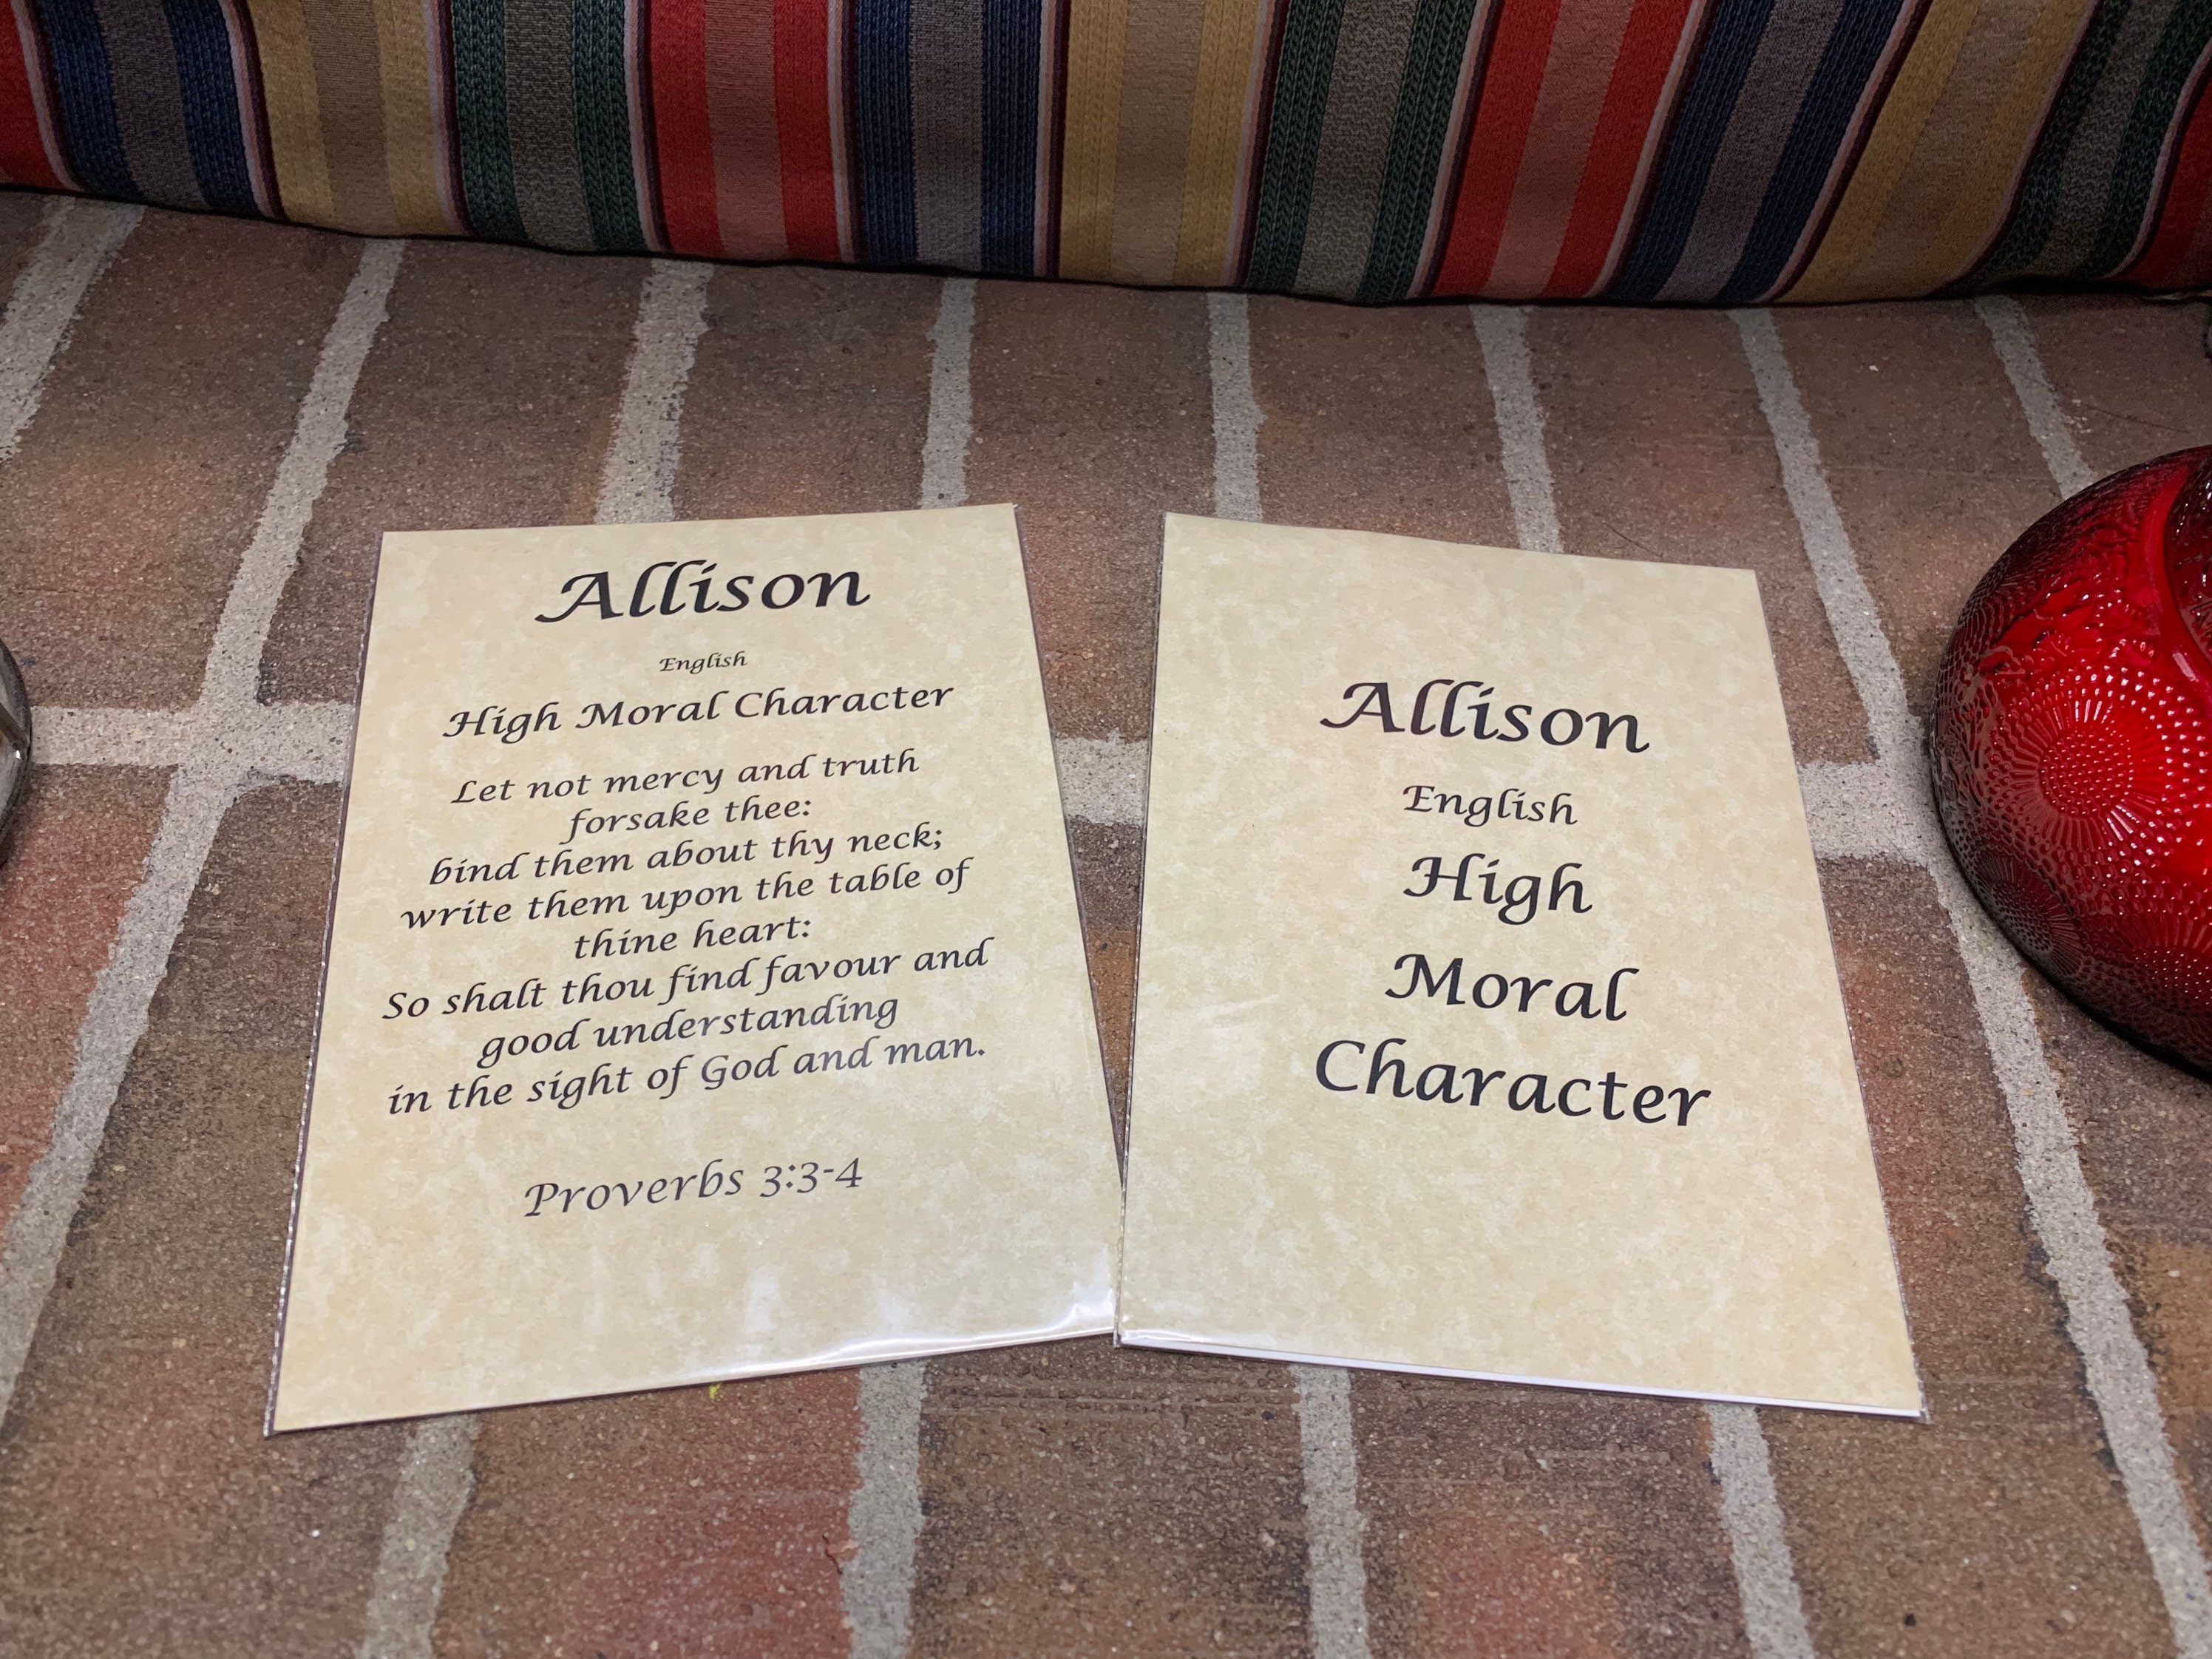 Allison
English
High Moral Character
Let not mercy and truth
forsake thee:
bind them about thy neck;
write them upon the table of
thine heart:
So shalt thou find favour and
good understanding
in the sight of God and man.
Proverbs 3:3-4
Allison
English
High
Moral
Character